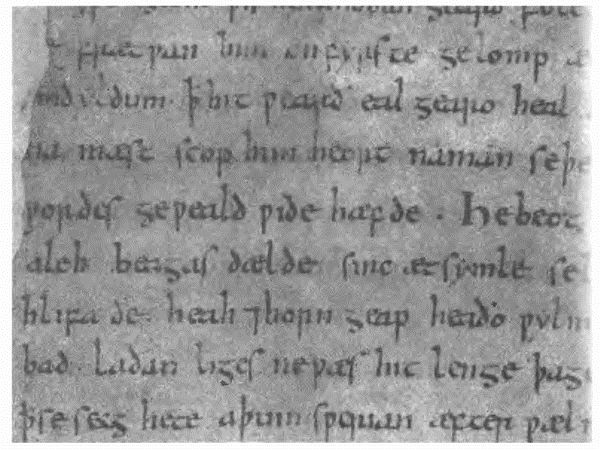 frætƿan him on fyrste gelomp æ
mid yldum ꝥ hit ƿearð eal gearo heal
na mæst scop him heort naman se þe
ƿordes geƿeald ƿide hæfde . He beot
aleh beagas dælde sinc æt symle se
hlifa de heah ⁊ horn geap heaðo ƿylm
bad laðan liges ne ƿæs hit lenge þa ge
ꝥ se secg hete aþum sƿerian æfter ƿæl